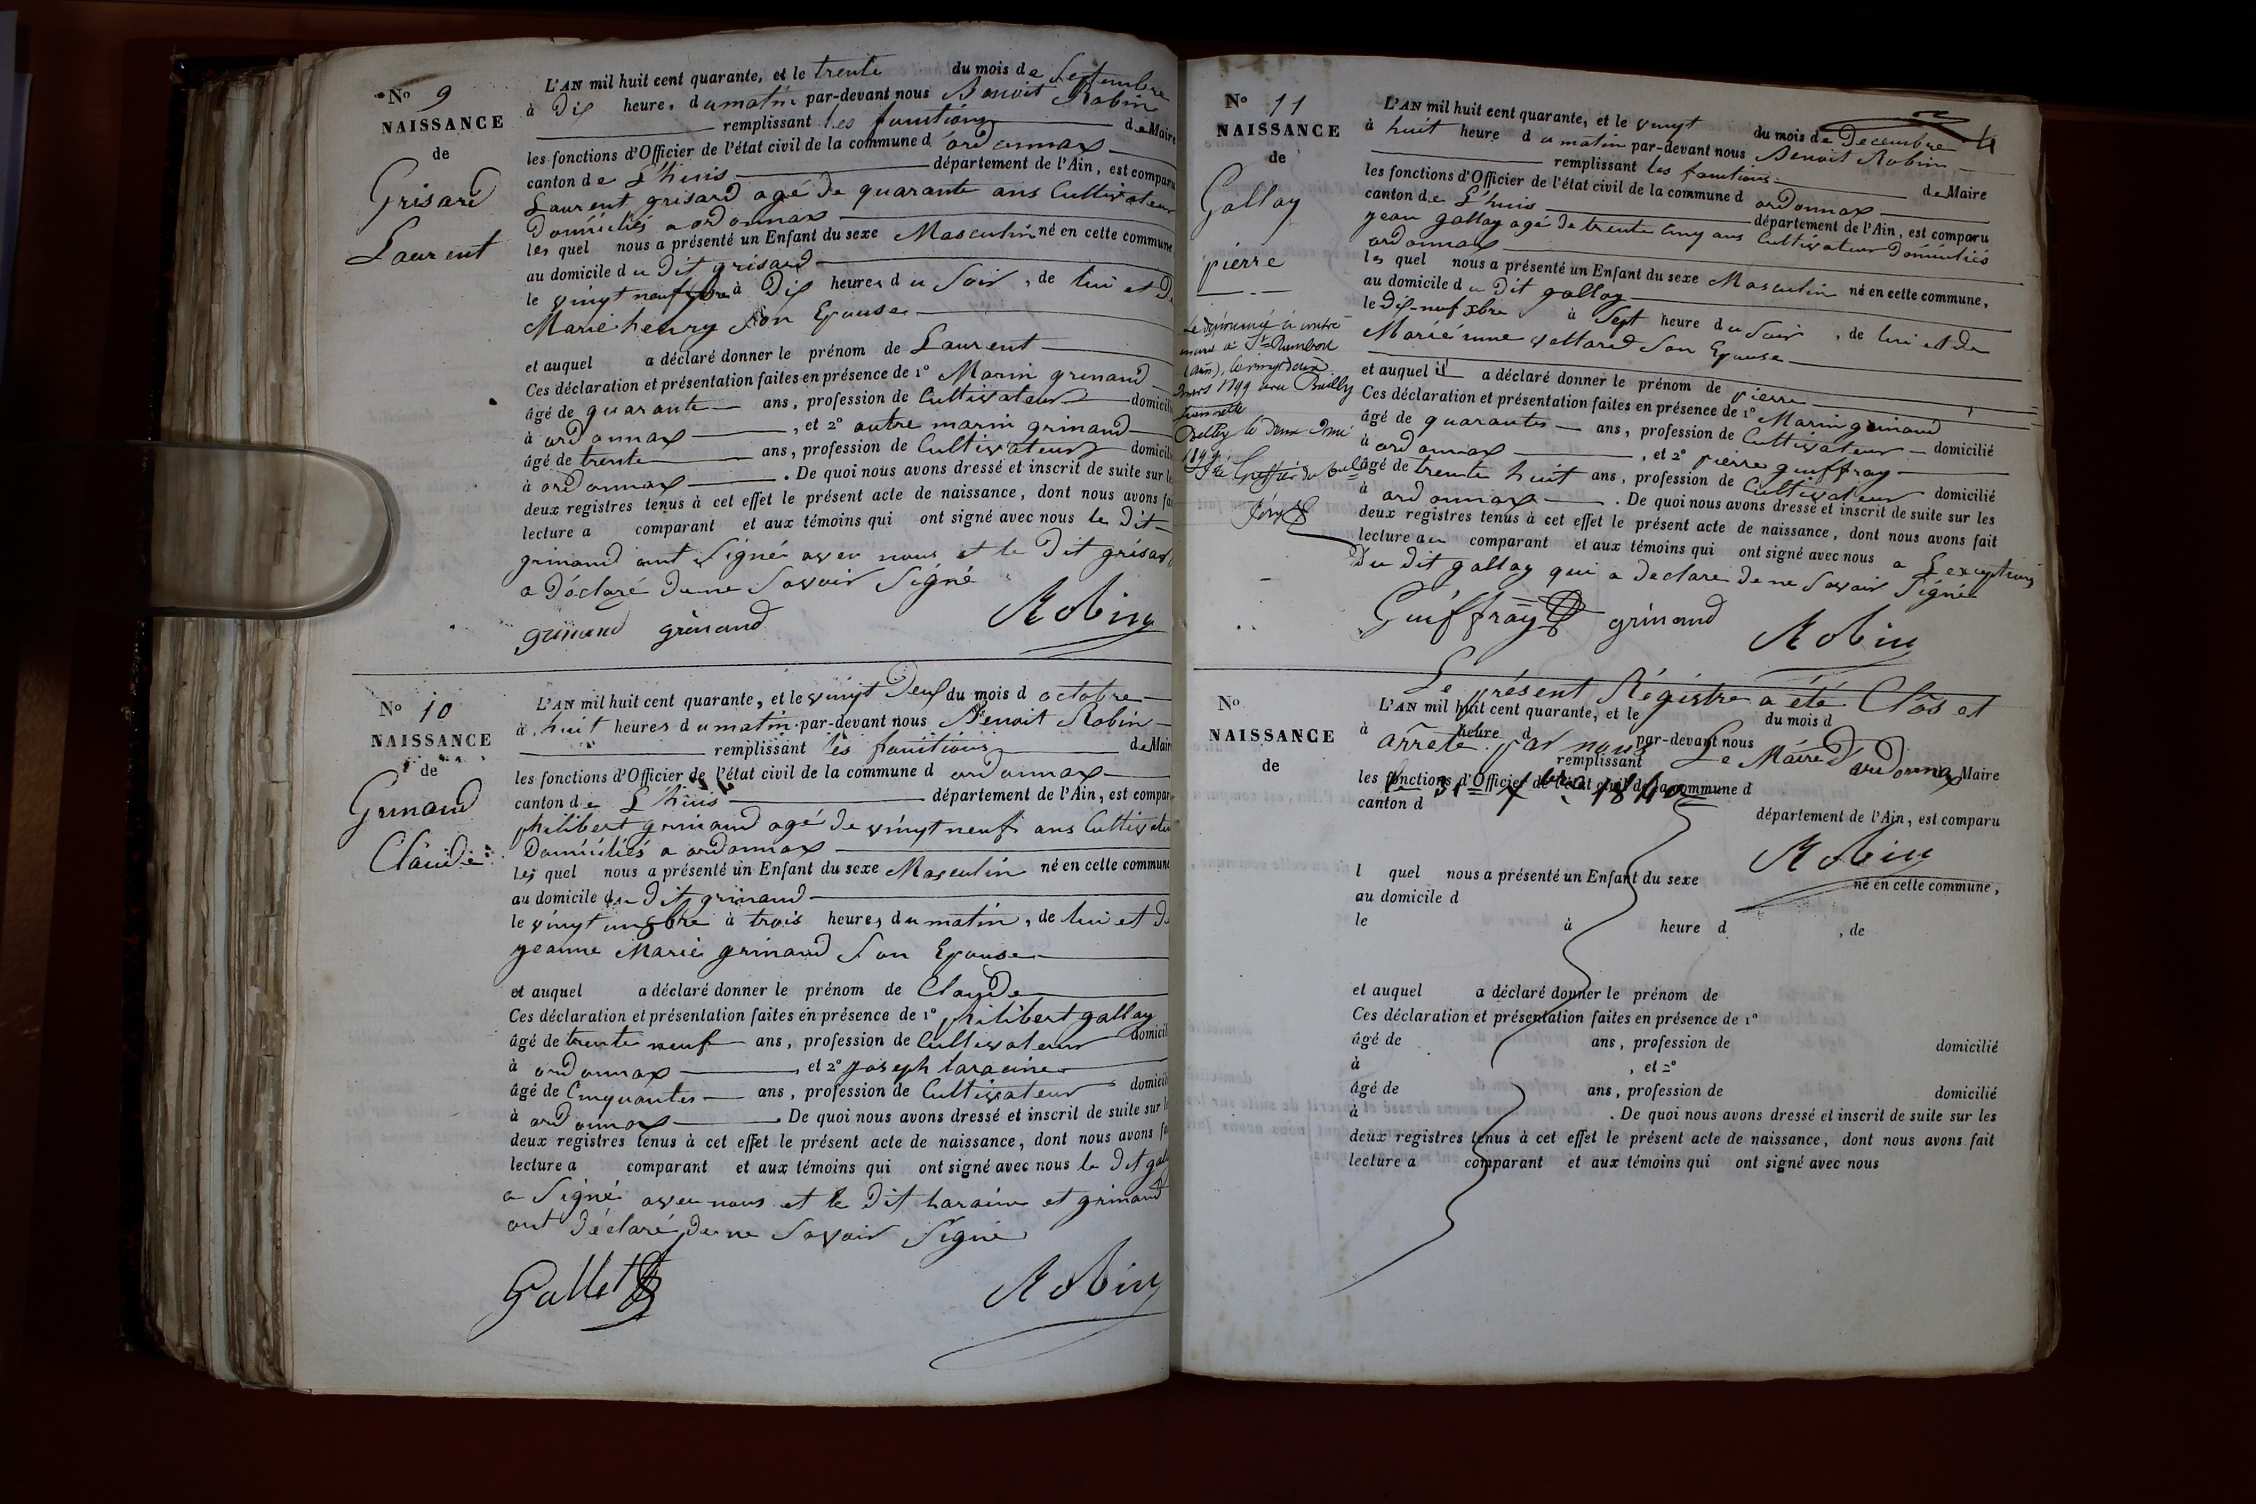 N° 9
NAISSANCE
de
Grisard
Laurent
L'AN mil huit cent quarante, et le trente du mois de Septembre
à Dix heures du matin par-devant nous Benoit Robin
remplissant les fonctions de Maire
les fonctions d'Officier de l'état civil de la commune d ordonnax
canton de L'huis département de l'Ain, est comparu
Laurent grisard agé de quarante ans Cultivateur
Domiciliés a ordonnax
les quel nous a présenté un Enfant du sexe Masculin né en cette commune
au domicile du Dit grisard
le vingt neuf à Dix heures du Soir, de lui et De
Marie henry Son Epouse
et auquel a déclaré donner le prénom de Laurent
Ces déclaration et présentation faites en présence de 1° Marin grinand
âgé de quarante ans, profession de Cultivateur domicilié
à ordonnax, et 2° autre marin grinand
âgé de trente ans, profession de Cultivateur domicilié
à ordonnax. De quoi nous avons dressé et inscrit de suite sur les
deux registres tenus à cet effet le présent acte de naissance, dont nous avons fait
lecture a comparant et aux témoins qui ont signé avec nous le Dit
grinand ont Signé avec nous et le Dit grisard
a Déclaré De ne Savoir Signé
grinand grinand Robin
N° 10
NAISSANCE
de
Grinand
Claude
L'AN mil huit cent quarante, et le vingt Deux du mois d octobre
à huit heures du matin par-devant nous Benoit Robin
remplissant les fonctions de Maire
les fonctions d'Officier de l'état civil de la commune d ordonnax
canton de L'huis département de l'Ain, est comparu
philibert grinand agé de vingt neuf ans Cultivateur
Domiciliés a ordonnax
les quel nous a présenté un Enfant du sexe Masculin né en cette commune
au domicile du Dit grinand
le vingt un 8bre à trois heures du matin, de lui et De
jeanne Marie grinand Son Epouse
et auquel a déclaré donner le prénom de Claude
Ces déclaration et présentation faites en présence de 1° philibert gallay
âgé de trente neuf ans, profession de Cultivateur domicilié
à ordonnax, et 2° joseph taracine
âgé de Cinquante ans, profession de Cultivateur domicilié
à ordonnax. De quoi nous avons dressé et inscrit de suite sur les
deux registres tenus à cet effet le présent acte de naissance, dont nous avons fait
lecture a comparant et aux témoins qui ont signé avec nous le Dit
a Signé avec nous et le Dit et grinand
ont Déclaré De ne Savoir Signé
Gallet Robin
N° 11
NAISSANCE
de
Gallay
pierre
4
L'AN mil huit cent quarante, et le vingt du mois de Decembre
à huit heure du matin par-devant nous Benoit Robin
remplissant les fonctions de Maire
les fonctions d'Officier de l'état civil de la commune d ordonnax
canton de L'huis département de l'Ain, est comparu
jean gallay agé de trente Cinq ans Cultivateur Domiciliés
ordonnax
les quel nous a présenté un Enfant du sexe Masculin né en cette commune,
au domicile du Dit gallay
le Dix-neuf xbre à Sept heure du Soir, de lui et De
Son Epouse
et auquel il a déclaré donner le prénom de pierre
Ces déclaration et présentation faites en présence de 1° Marin grinand
âgé de quarante ans, profession de Cultivateur domicilié
à ordonnax, et 2° pierre guiffray
âgé de trente huit ans, profession de Cultivateur domicilié
à ordonnax. De quoi nous avons dressé et inscrit de suite sur les
deux registres tenus à cet effet le présent acte de naissance, dont nous avons fait
lecture au comparant et aux témoins qui ont signé avec nous a L'exception
Du dit gallay qui a declare de ne Savoir Signé
Guiffray grinand Robin
Le présent Régistre a été Clos et
arrêté par nous Le Maire D'ordonnax
le 31 Xbre 1840
Robin
N°
NAISSANCE
de
L'AN mil huit cent quarante, et le du mois d
à heure d par-devant nous
remplissant Maire
les fonctions d'Officier de l'état civil de la commune d
canton d département de l'Ain, est comparu
l quel nous a présenté un Enfant du sexe né en cette commune,
au domicile d
le à heure d, de
et auquel a déclaré donner le prénom de
Ces déclaration et présentation faites en présence de 1°
âgé de ans, profession de domicilié
à, et 2°
âgé de ans, profession de domicilié
à. De quoi nous avons dressé et inscrit de suite sur les
deux registres tenus à cet effet le présent acte de naissance, dont nous avons fait
lecture a comparant et aux témoins qui ont signé avec nous